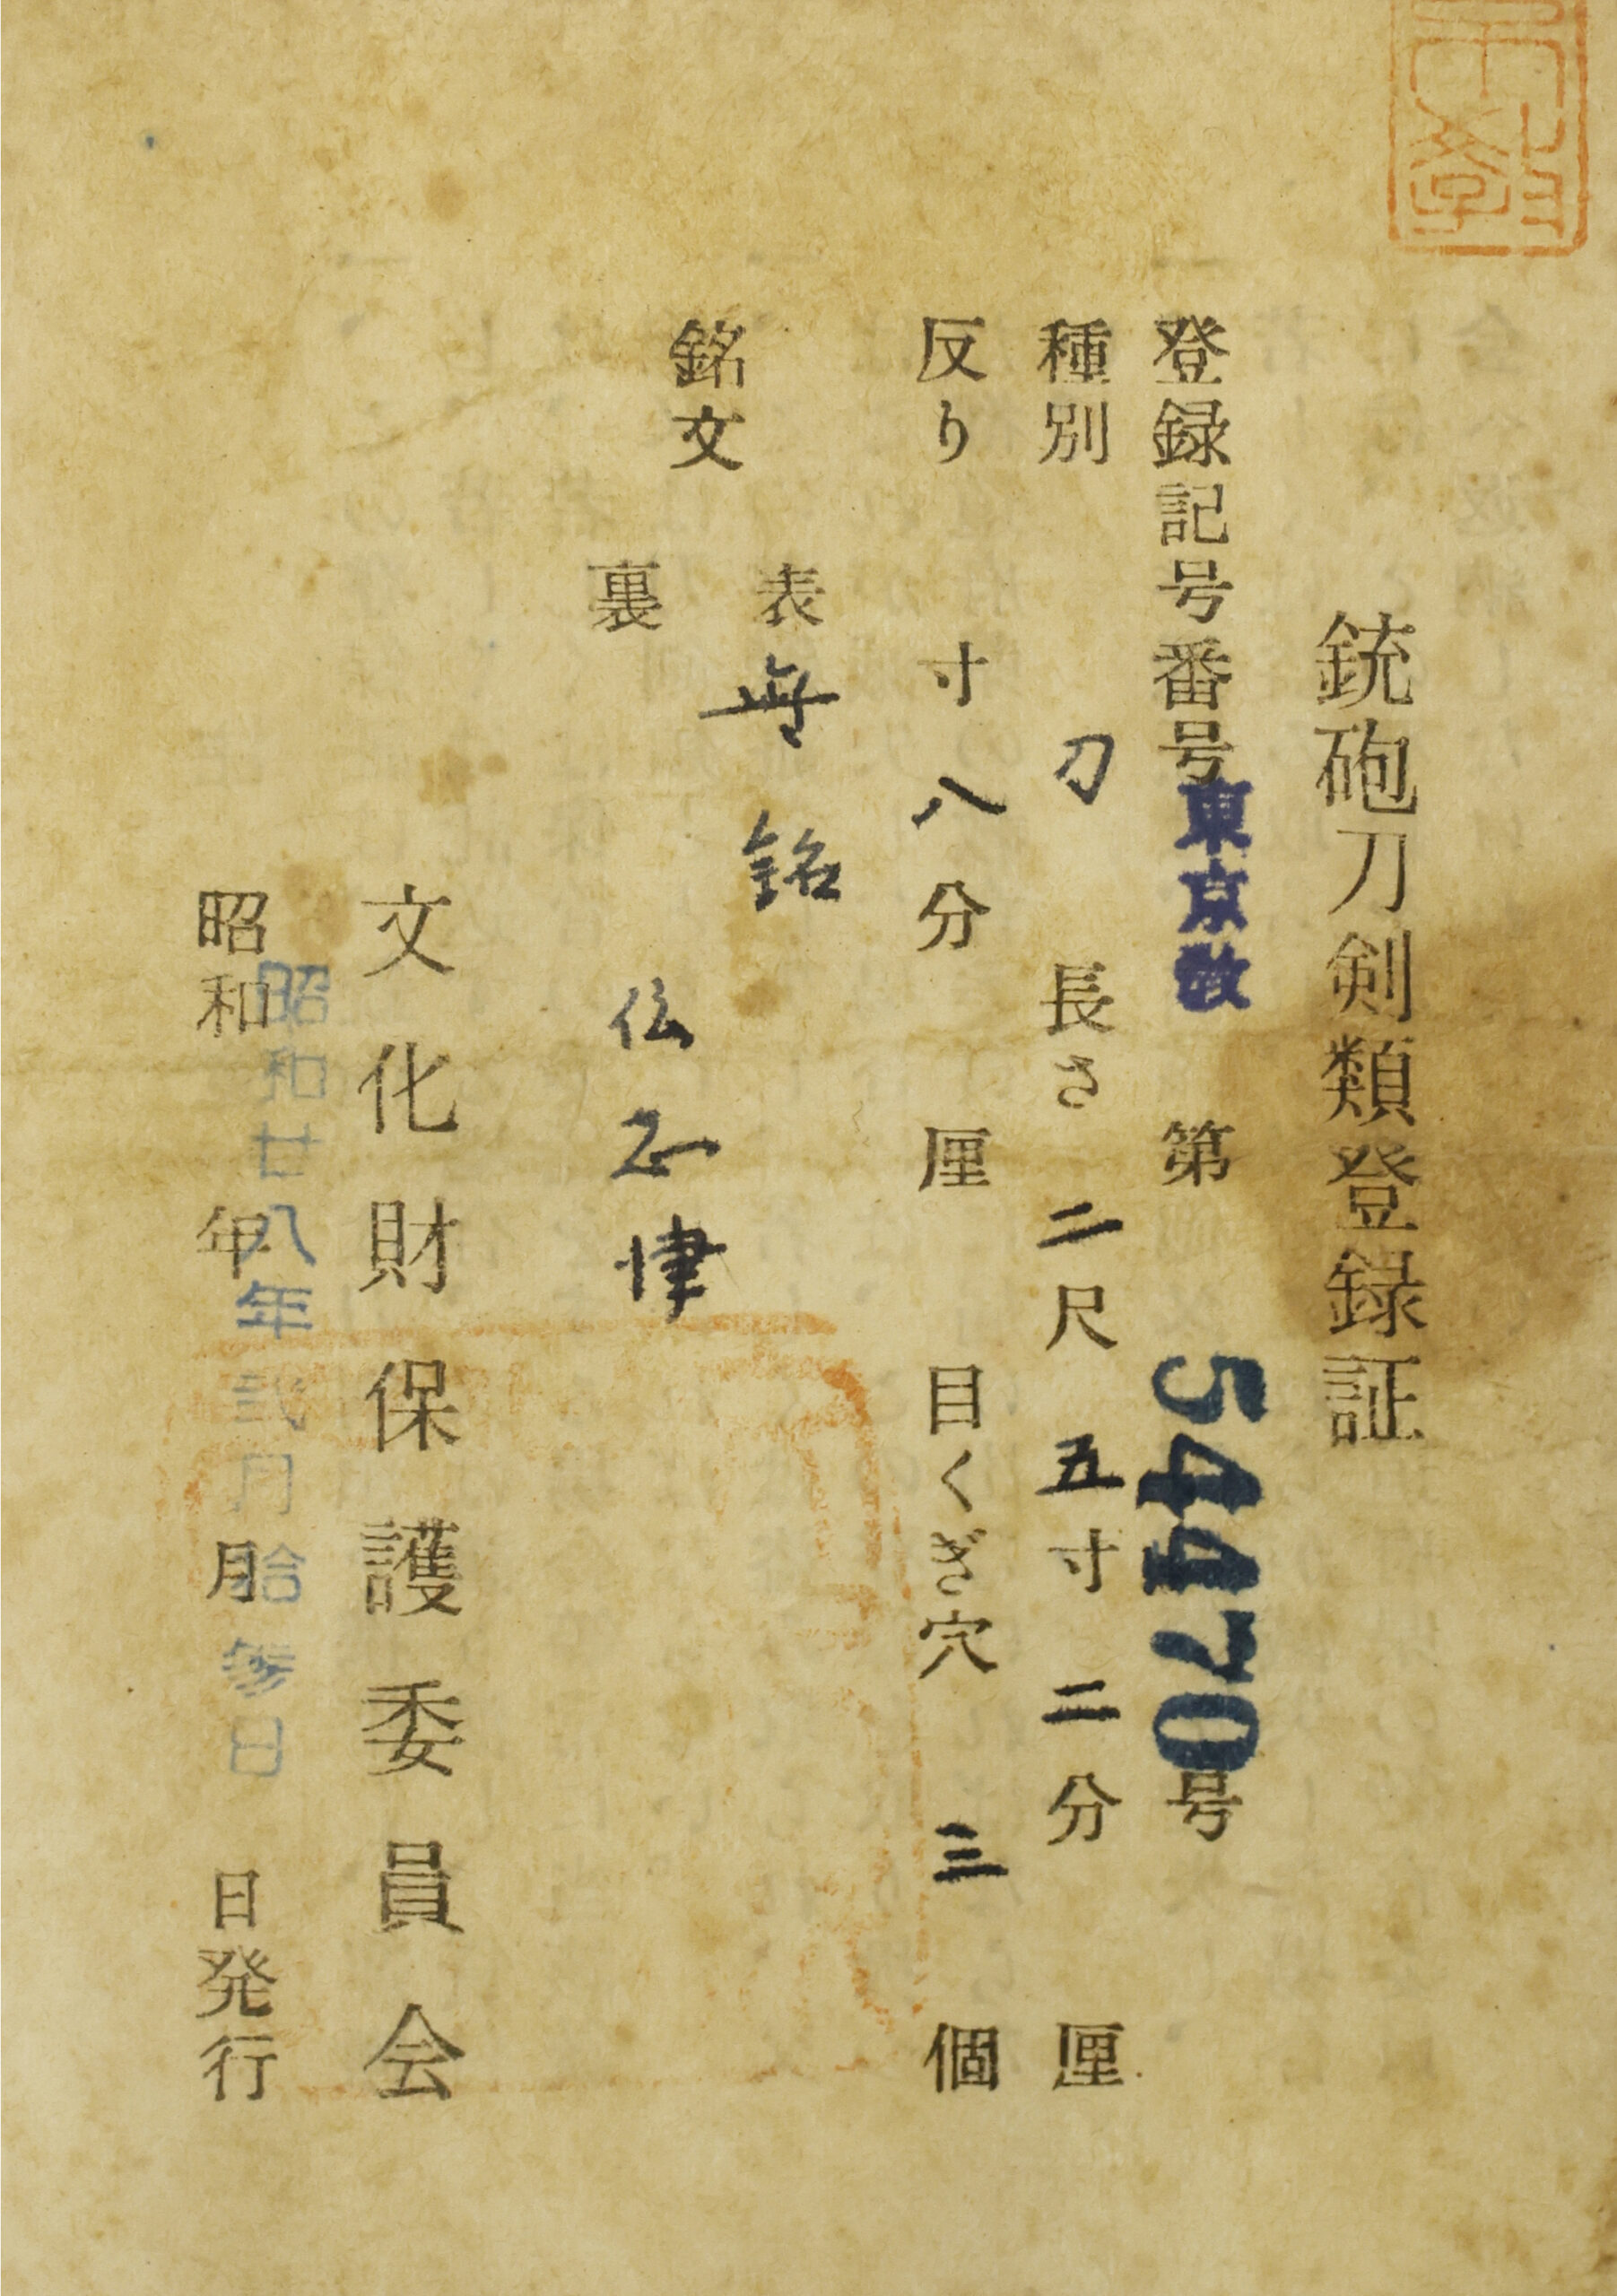 銃砲刀剣類登録証
登録記号番号東京教 第54470号
種別 刀 長さ 二尺 五寸 二分 厘
反り 寸 八分 厘 目くぎ穴 三 個
銘文
表 無銘
裏 伝正
文化財保護委員会
昭和 年 月 日発行
昭和廿八年弐月拾参日